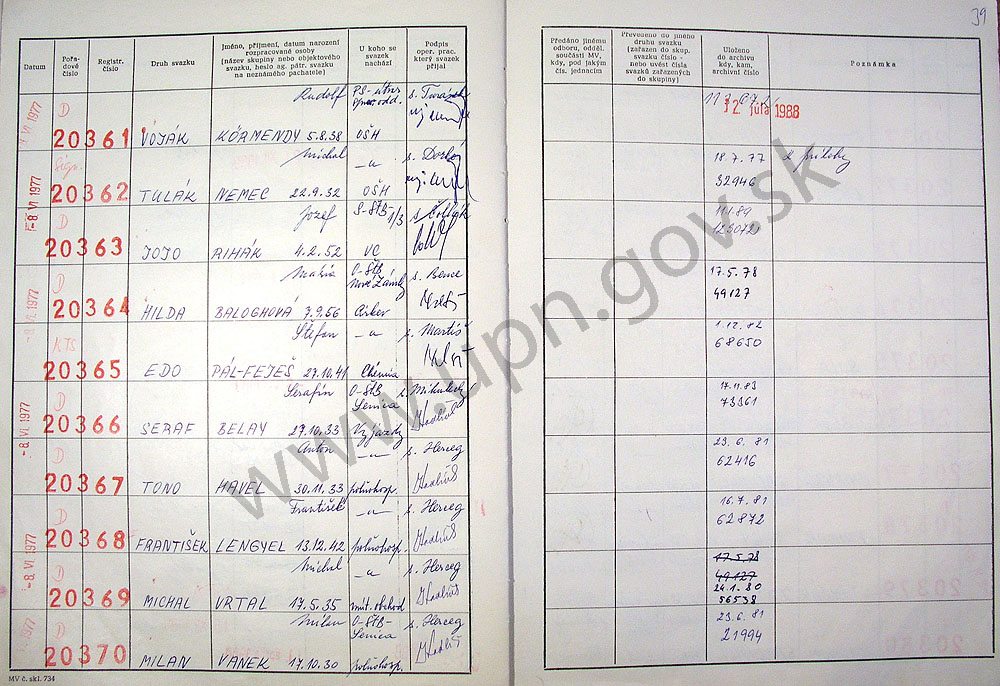 39
Datum
Pořadové číslo
Registr. číslo
Druh svazku
Jméno, příjmení, datum narození rozpracované osoby (název skupiny nebo objektového svazku, heslo ag. pátr. svazku na neznámého pachatele)
U koho se svazek nachází
Podpis oper. prac. který svazek přijal
Předáno jinému odboru, odděl. součásti MV, kdy, pod jakým čís. jednacím
Převedeno do jiného druhu svazku (zařazen do skup. svazku číslo - nebo uvést čísla svazků zařazených do skupiny)
Uloženo do archivu kdy, kam, archivní číslo
Poznámka
VI 1977 D Rudolf
20361 VOJÁK KÖRMENDY 5.8.38 OŠH
12 júla 1988
-8. VI 1977 Sign. Michal -"-
20362 TULÁK NEMEC 22.9.32 OŠH
18.7.77
32946
D Jozef S-ŠtB 1/3
20363 JOJO RIHÁK 4.2.52 VC
11.1.89
D Mária O-ŠtB Nové Zámky s. Bence
20364 HILDA BALOGHOVÁ 7.9.56 Cirkev
17.5.78
49127
KTS Štefan -"- s. Martiš
20365 EDO PÁL-FEJEŠ 27.10.41 Chémia
1.12.82
68650
-8. VI. 1977 D Serafín O-ŠtB Senica
20366 SERAF BELAY 27.10.33 Vyjazdy
17.11.83
73361
D Anton -"- s. Herceg
20367 TONO HAVEL 30.11.33 poľnohosp.
23.6.81
62416
-8. VI. 1977 D František -"- s. Herceg
20368 FRANTIŠEK LENGYEL 13.12.42 poľnohosp.
16.7.81
62872
D Michal -"- s. Herceg
20369 MICHAL VRTAL 17.5.35 vnút. obchod
17.5.78
49127
24.1.80
56538
1977 D Milan O-ŠtB- Senica s. Herceg
20370 MILAN VANEK 17.10.30 poľnohosp.
23.6.81
21994
MV č. skl. 734
www.upn.gov.sk